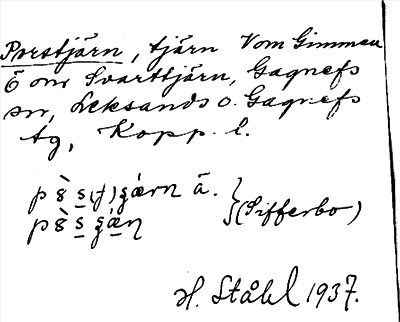 Porstjärn, tjärn V om Gimmen
Ö om Svarttjärn, Gagnefs
sn, Leksands o. Gagnefs
tg, Kopp. l.
ä. } (Sifferbo)
H. Ståhl 1937.